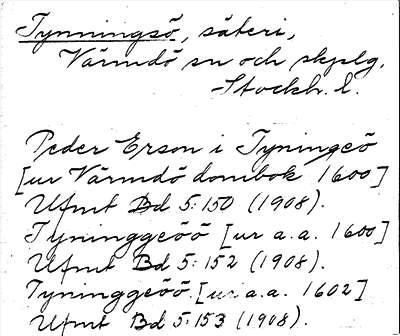 Tynningsö, säteri,
Värmdö sn och skplg,
Stockh. l.
Peder Erson i Tyningeö
[ur Värmdö dombok 1600]
Ufmt Bd 5:150 (1908).
Tyninggeöö [ur a.a. 1600]
Ufmt Bd 5:152 (1908).
Tyninggeöö [ur a.a. 1602]
Ufmt Bd 5:153 (1908).